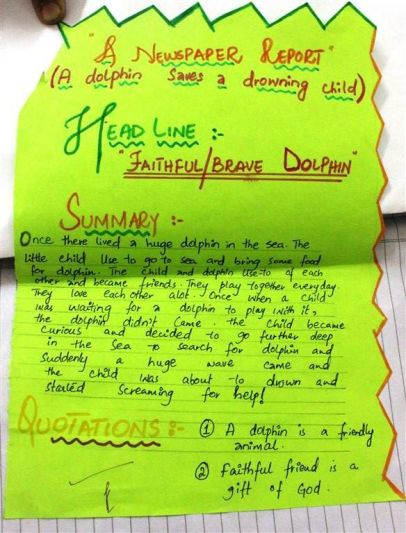 "A NEWSPAPER REPORT"
(A dolphin saves a drowning child)
HEAD LINE :-
"FAITHFUL/BRAVE DOLPHIN"
SUMMARY :-
Once there lived a huge dolphin in the sea. The
little child use to go to sea and bring some food
for dolphin. The child and dolphin use-to of each
other and became friends. They play together everyday.
They love each other alot. Once when a child
was waiting for a dolphin to play with it,
the dolphin didn't came. the child became
curious and decided to go further deep
in the sea to search for dolphin and
Suddenly a huge wave came and
the child was about to drown and
started screaming for help!
QUOTATIONS :-
① A dolphin is a friendly
animal.
② Faithful friend is a
gift of God.